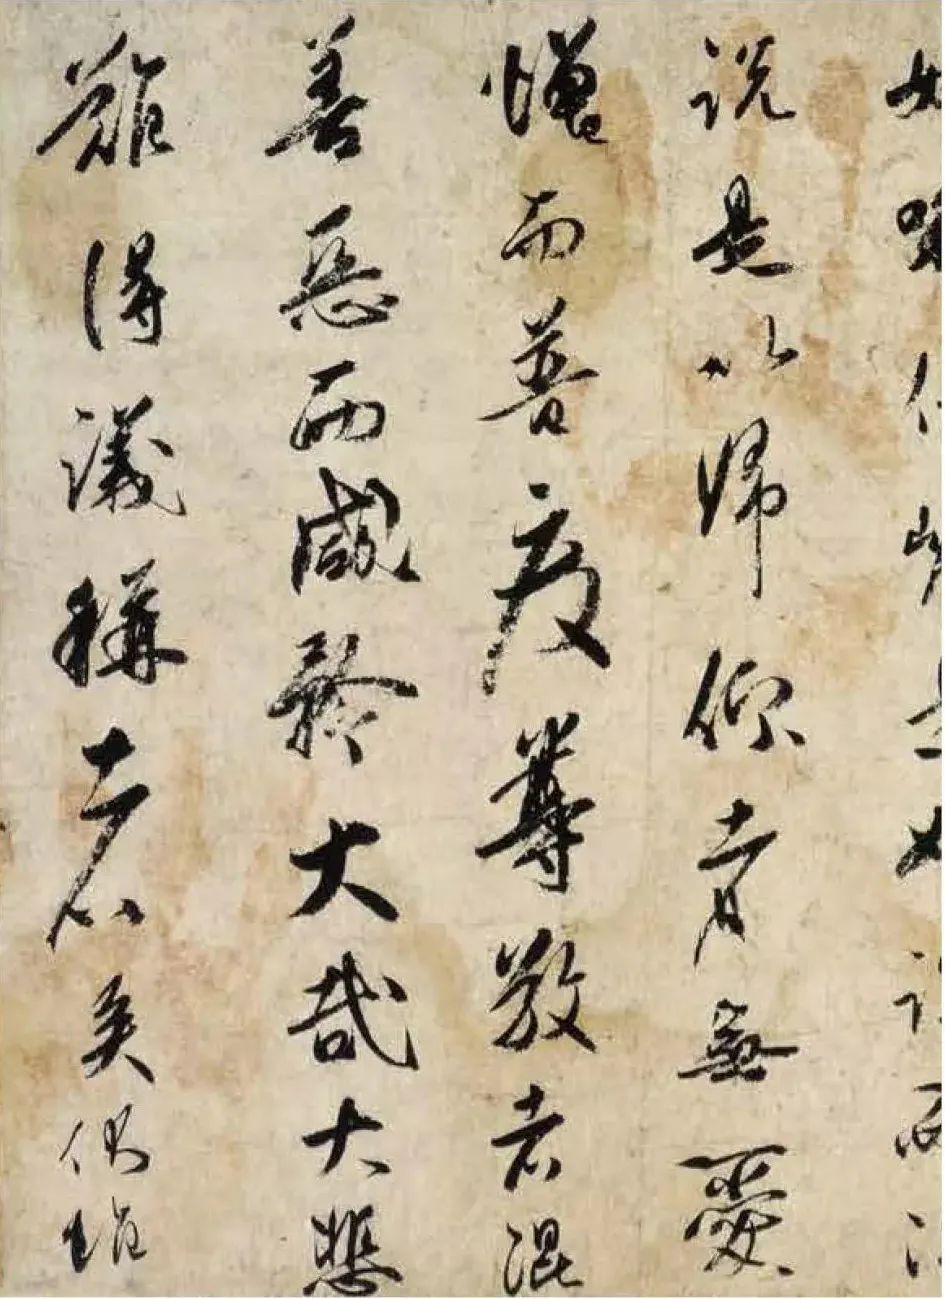 說是以歸仰者無愛
憎而普度尊敬者混
善惡而咸矜大哉大悲
難得議稱者矣